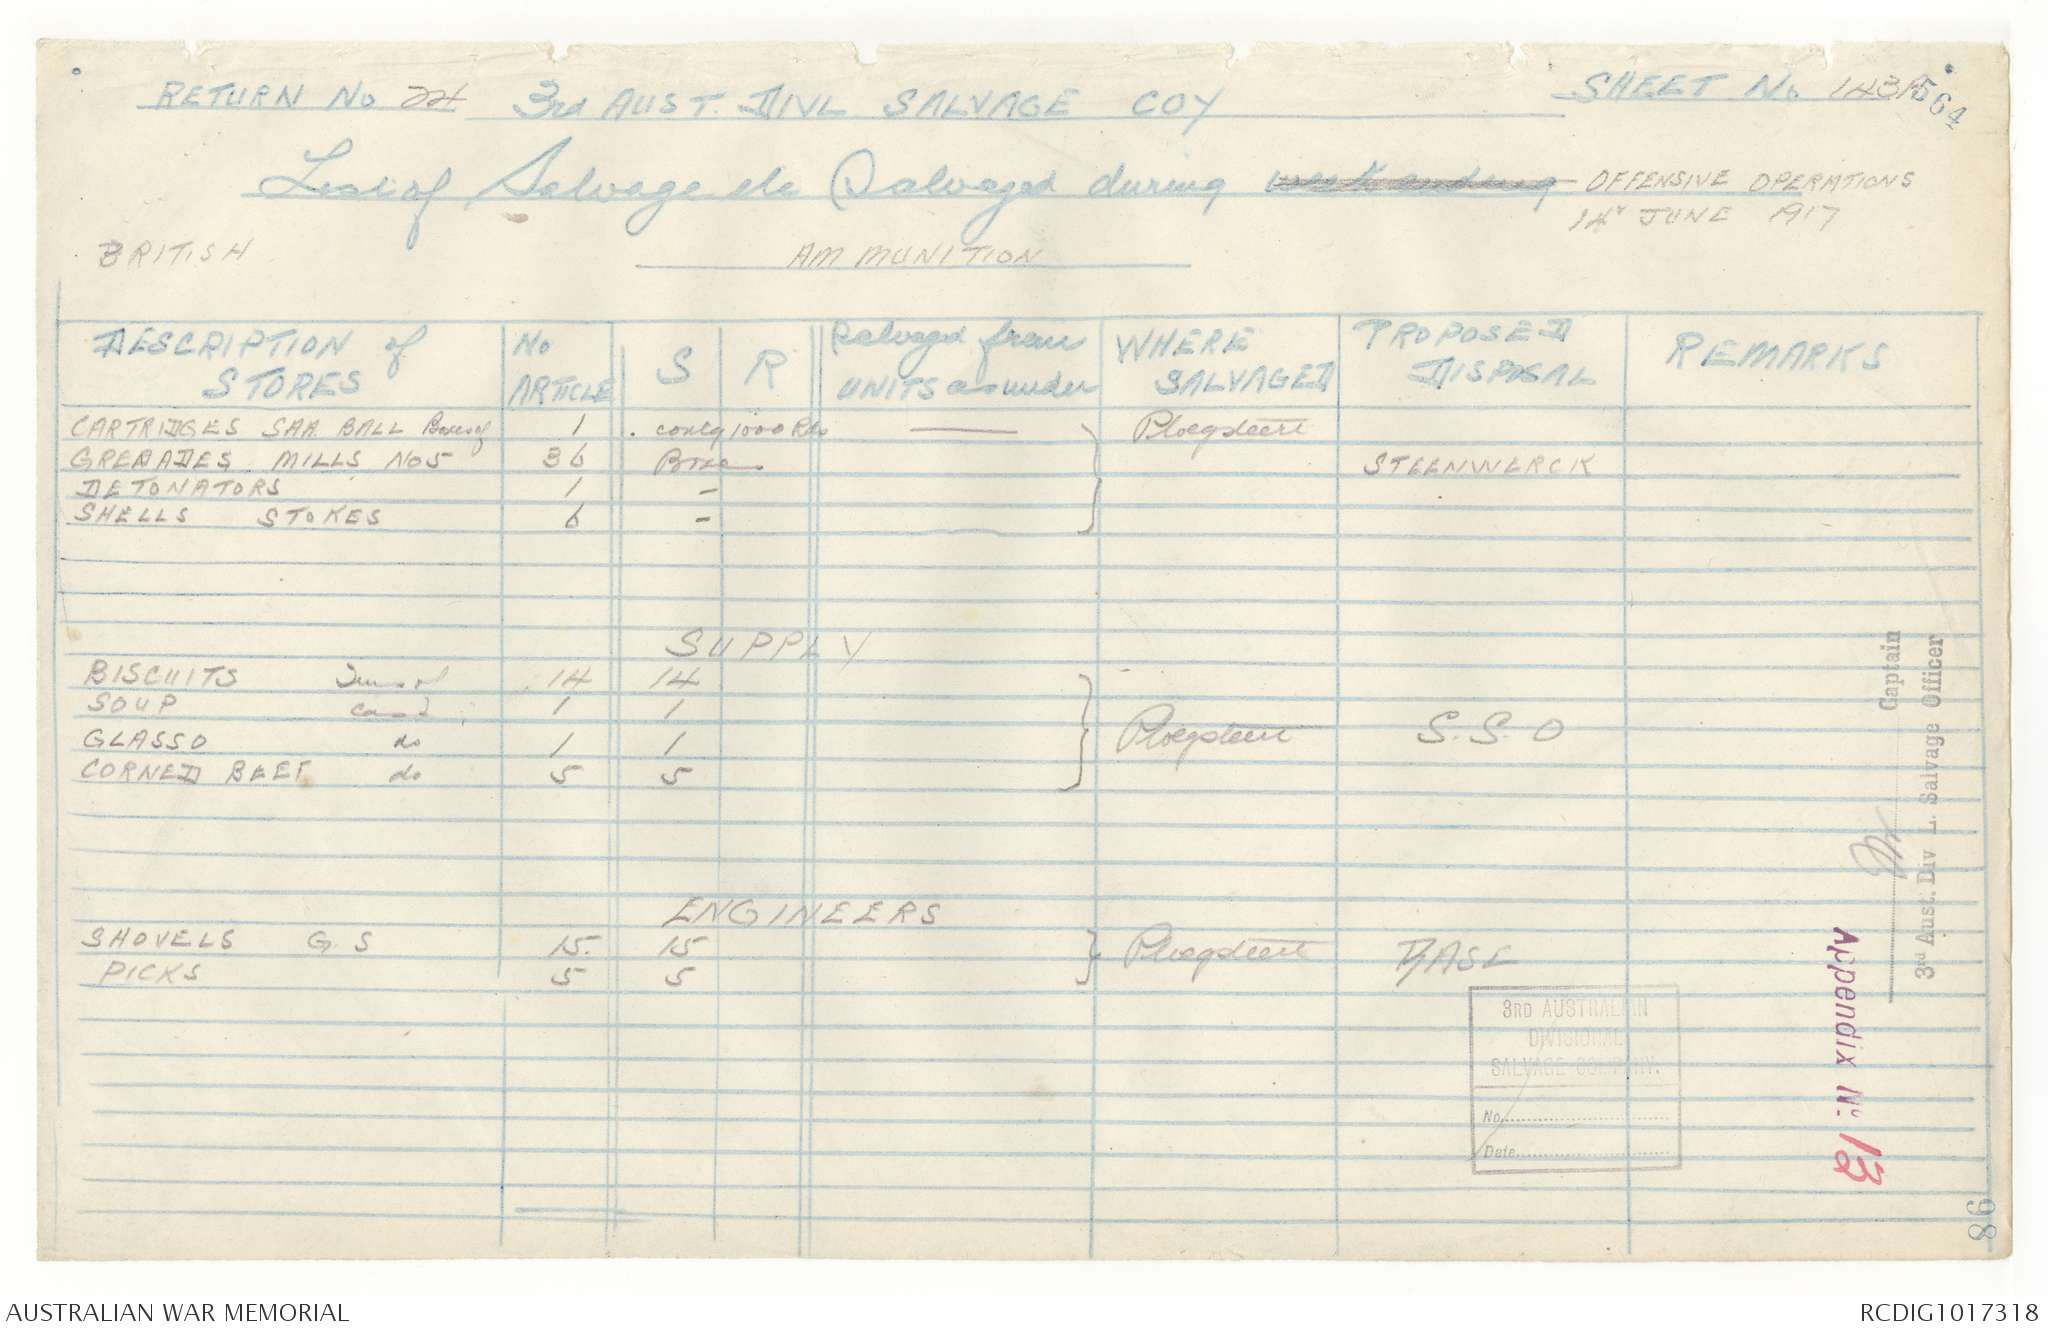 RETURN No 24 3rd AUST. DIVL SALVAGE COY SHEET No 143A
564
List of Salvage etc Salvaged during week ending OFFENSIVE OPERATIONS
14th JUNE 1917
BRITISH AMMUNITION
DESCRIPTION of STORES No ARTICLE S R Salvaged from UNITS as under WHERE SALVAGED PROPOSED DISPOSAL REMARKS
CARTRIDGES SAA BALL Boxes of 1 contg 1000 Rds —— Ploegsteert
GRENADES. MILLS No 5 36 Boxes STEENWERCK
DETONATORS 1 -
SHELLS STOKES 6 -
SUPPLY
BISCUITS Tins of 14 14
SOUP 1 1
GLASSO do 1 1 Ploegsteert S.S.O
CORNED BEEF do 5 5
ENGINEERS
SHOVELS G.S 15. 15 Ploegsteert
PICKS 5 5
3RD AUSTRALIAN
DIVISIONAL
SALVAGE COMPANY.
No.
Date
Captain
3rd Aust. Div L. Salvage Officer
Appendix No. 13
86
AUSTRALIAN WAR MEMORIAL RCDIG1017318